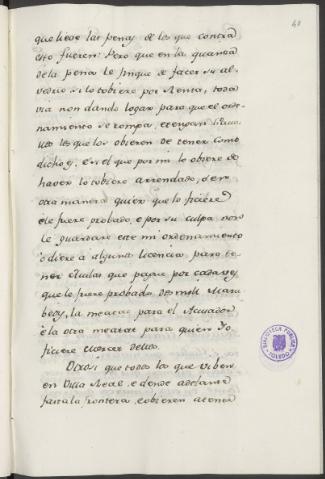 40
que lieve las penas de los que contra
esto fueren. Pero que en la quantia
de la pena le finque de facer su al-
vedrio si lo tobiere por Renta, toda
via non dando logar para que el orde-
namiento se rompa, e tengan
los que los obieren de tener como
dicho es, e si el que por mi lo obiere de
haver lo tobiere arrendado, o en
otra manera quier que lo ficiere
e le fuere probado, e por su culpa non
se guardare este mi ordenamiento
o diere a alguno licencia, para te-
ner mulas que peche por cada vez
que le fuere probado dos mill mara-
bedis, la meatat para el acusador
e la otra meatat para quien Yo
ficiere merced dello.
Otrosi que todos los que viben
en Villa Real, e dende adelante
fasta la frontera, e obieren a tener
BIBLIOTECA PUBLICA
TOLEDO